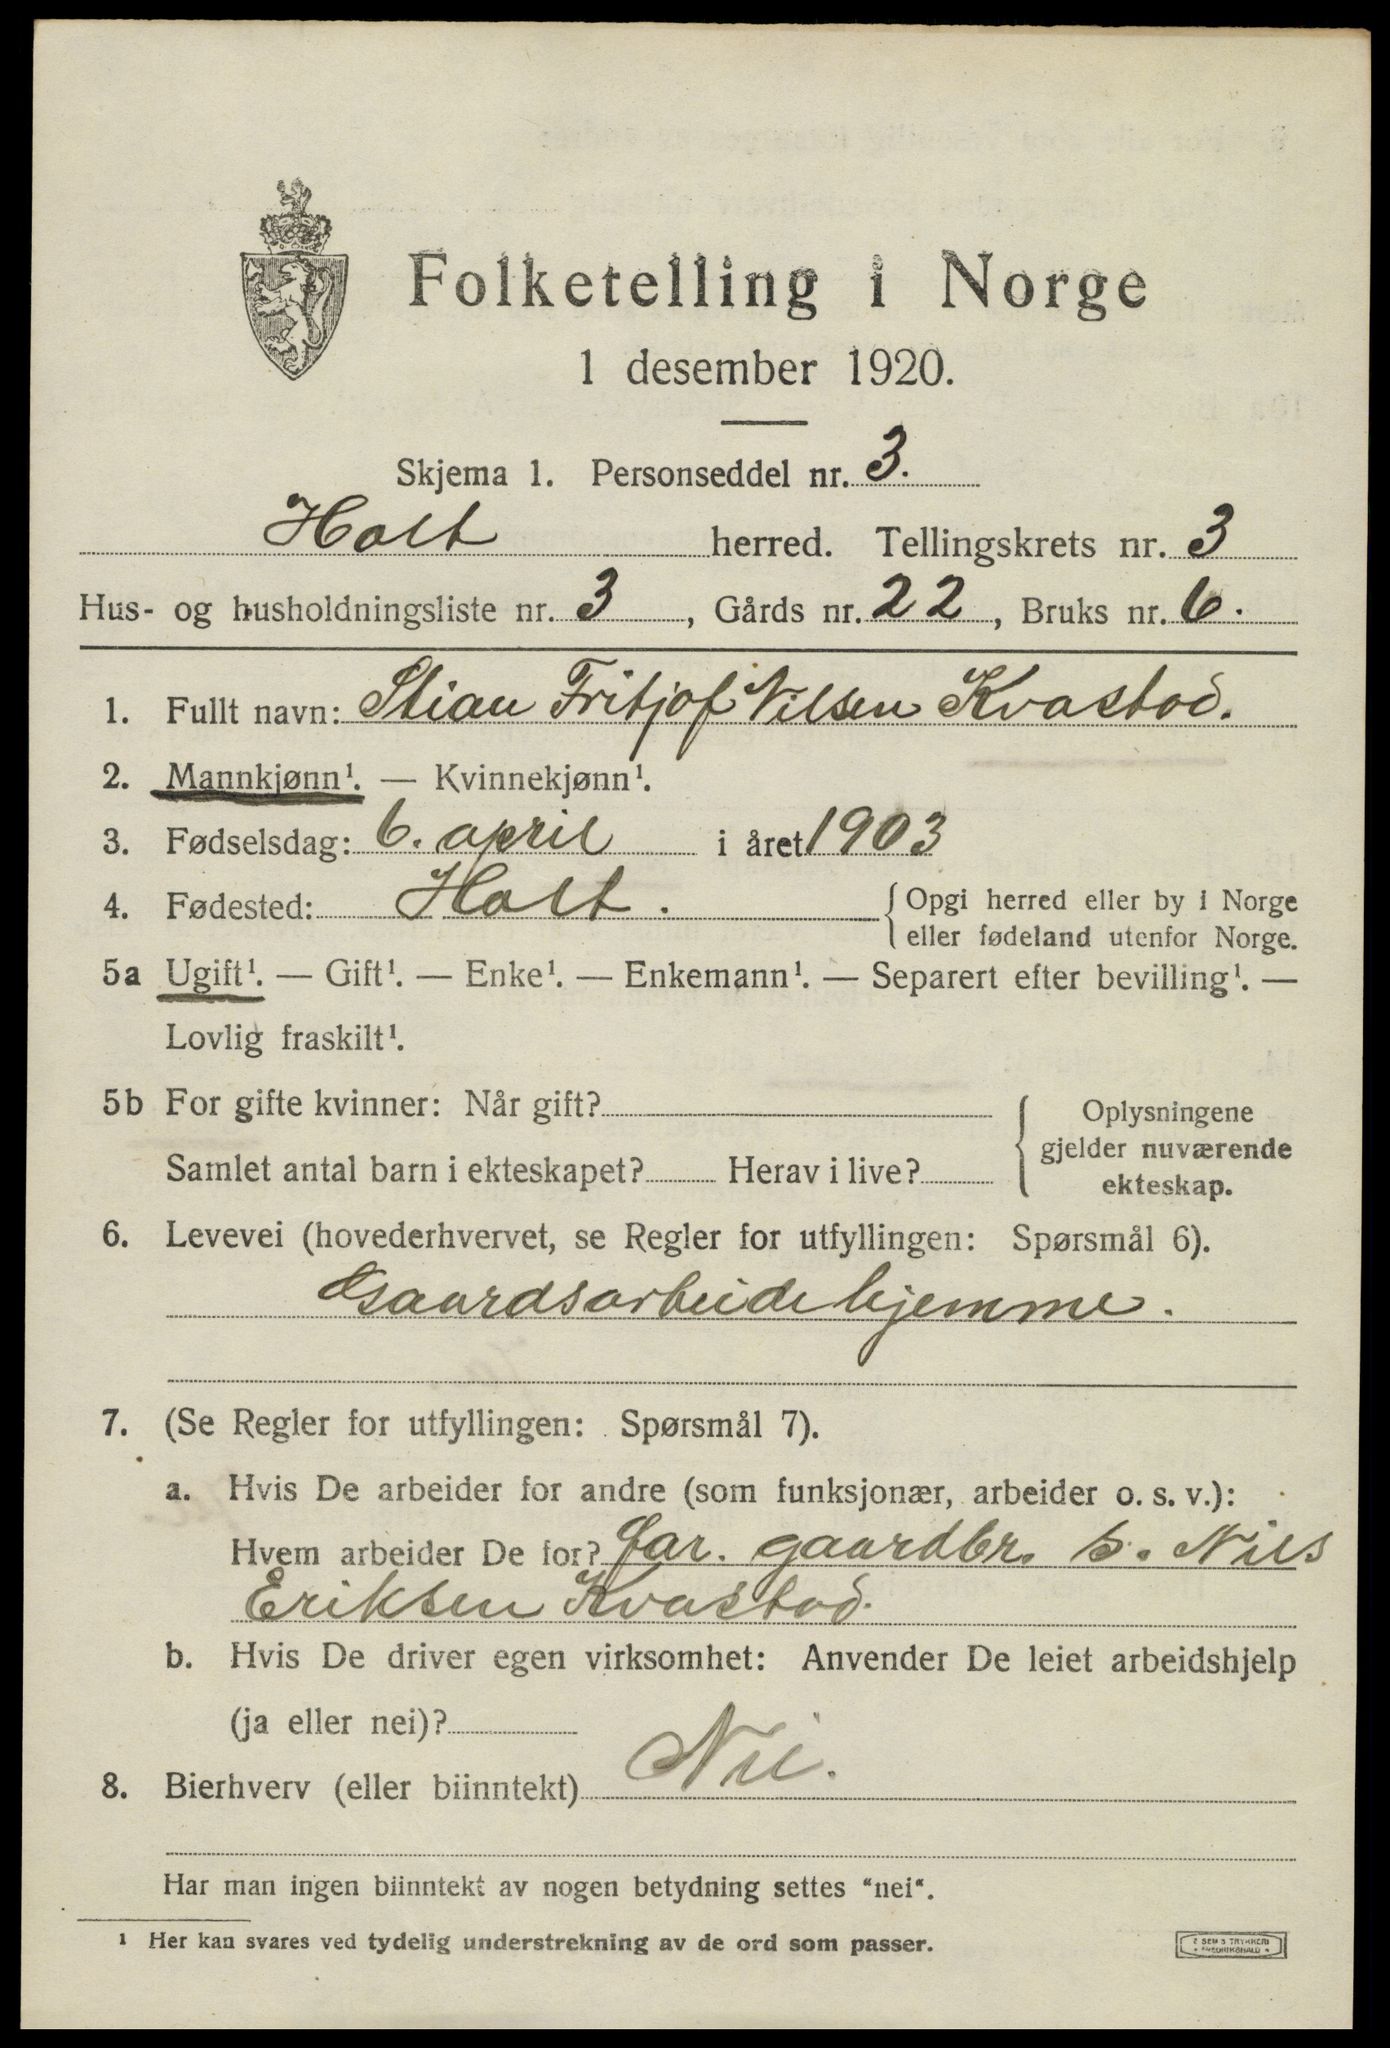 Folketelling i Norge
1 desember 1920.
Skjema 1. Personseddel nr. 3.
Holt herred. Tellingskrets nr. 3
Hus- og husholdningsliste nr. 3, Gårds nr. 22, Bruks nr. 6.
1. Fullt navn: Stian Fritjof Nilsen Kvastad.
2. Mannkjønn¹. — Kvinnekjønn¹.
3. Fødselsdag: 6. april i året 1903
4. Fødested: Holt. { Opgi herred eller by i Norge
eller fødeland utenfor Norge.
5a Ugift¹. — Gift¹. — Enke¹. — Enkemann¹. — Separert efter bevilling¹. —
Lovlig fraskilt¹.
5b For gifte kvinner: Når gift? { Oplysningene
gjelder nuværende
Samlet antal barn i ekteskapet? Herav i live?
ekteskap.
6. Levevei (hovederhvervet, se Regler for utfyllingen: Spørsmål 6).
Gaardsarbeide hjemme.
7. (Se Regler for utfyllingen: Spørsmål 7).
a. Hvis De arbeider for andre (som funksjonær, arbeider o. s. v.):
Hvem arbeider De for? far. gaardbr. s. Nils
Eriksen Kvastad.
b. Hvis De driver egen virksomhet: Anvender De leiet arbeidshjelp
(ja eller nei)?
8. Bierhverv (eller biinntekt) Nei.
Har man ingen biinntekt av nogen betydning settes "nei".
¹ Her kan svares ved tydelig understrekning av de ord som passer.
TRYKKERI
FREDRIKSHALD